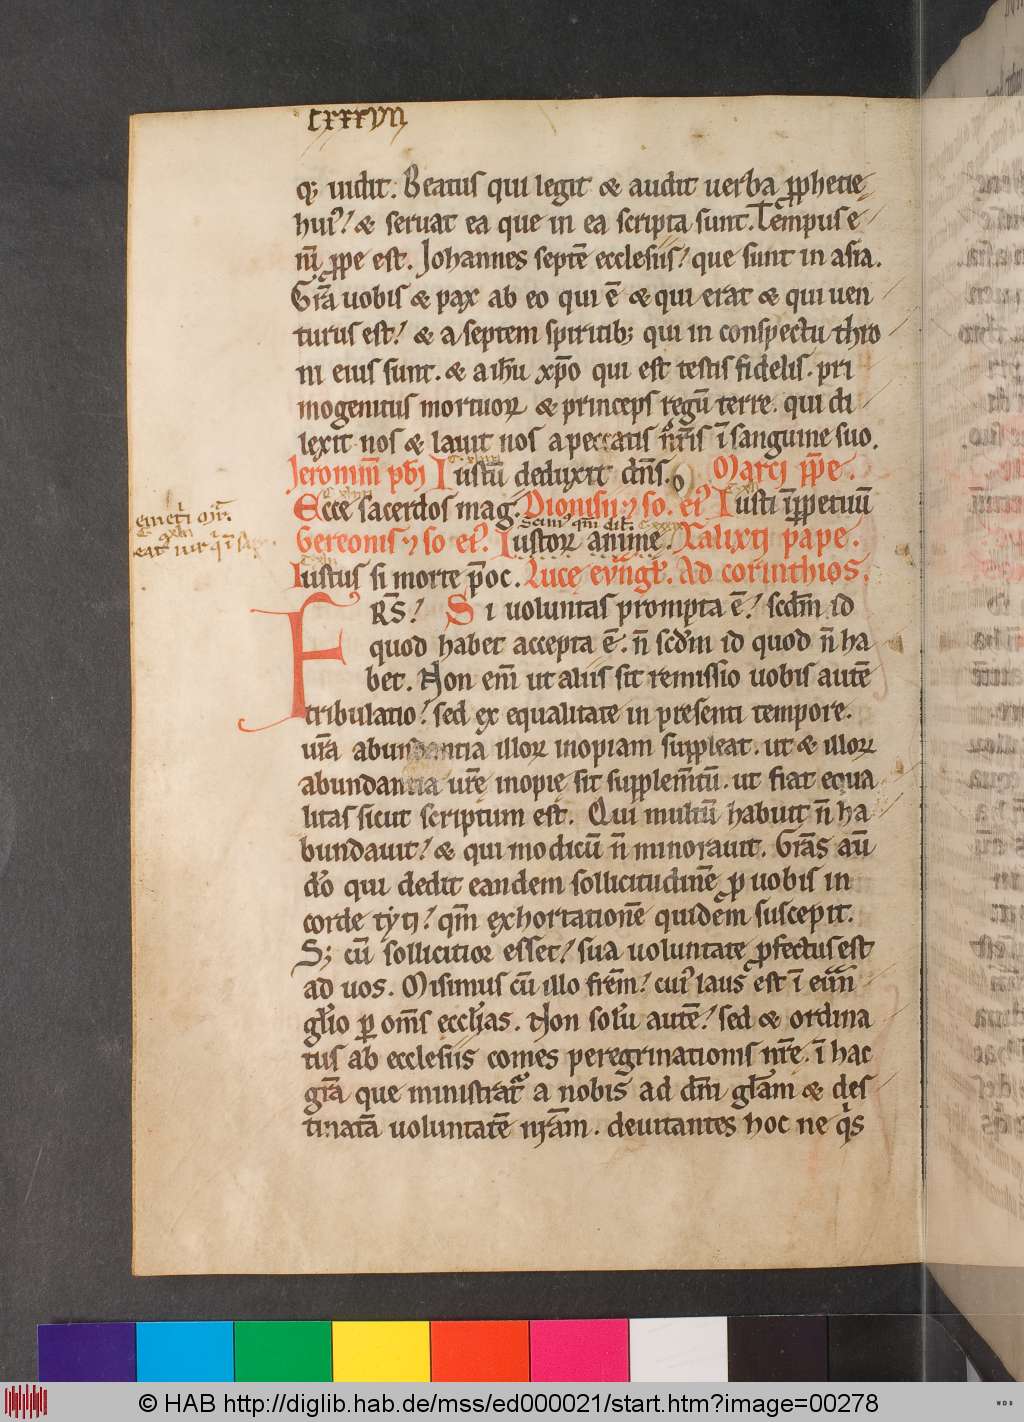 cxxxvii
q; uidit. Beatus qui legit & audit uerba ꝓphetie
hui᾽? & seruat ea que in ea scripta sunt. Tempus e
nī ꝓpe est. Johannes septē ecclesiis? que sunt in asia.
Gr̄a uobis & pax ab eo qui ē & qui erat & qui uen
turus est? & a septem spiritib; qui in conspectu thro
ni eius sunt. & a ih̄u xp̄o qui est testis fidelis. pri
mogenitus mortuoꝝ & princeps regū terre. qui di
lexit nos & lauit nos a peccatis nr̄is ī sanguine suo.
Jeronimi pb̄ri Iustū deduxit dn̄s. Marci pp̄e.
Ecce sacerdos mag. Dionisii ⁊ so. ei᾽. Iusti ī ꝑpetuū
Gereonis ⁊ so ei᾽. Iustoꝝ anime. Kalixti pape.
Iustus si morte p̄oc. Luce ev̄ngl̄. Ad corinthios.
FRS̄? Si uoluntas prompta ē? scd̄m id
quod habet accepta ē. n̄ scd̄m id quod n̄ ha
bet. Non eni̅ ut aliis sit remissio uobis autē
tribulatio? sed ex equalitate in presenti tempore.
ur̄a abundantia illoꝝ inopiam suppleat. ut & illoꝝ
abundantia ur̄e inopie sit supplem̄tū. ut fiat equa
litas sicut scriptum est. Qui multū habuit n̄ ha
bundauit? & qui modicū n̄ minorauit. Gr̄as aū
dō qui dedit eandem sollicitudinē ꝓ uobis in
corde tyti? qm̄ exhortationē quidem suscepit.
S; cū sollicitior esset? sua uoluntate ꝓfectus est
ad uos. Misimus cū illo fr̄em? cui᾽ laus est ī eūn
gl̄io ꝑ om̄s eccl̄ias. Non solū autē? sed & ordina
tus ab ecclesiis comes peregrinationis nr̄e. ī hac
gr̄a que ministrat᾽ a nobis ad dn̄i gl̄am & des
tinatā uoluntatē nr̄am. deuitantes hoc ne qis
© HAB http://diglib.hab.de/mss/ed000021/start.htm?image=00278